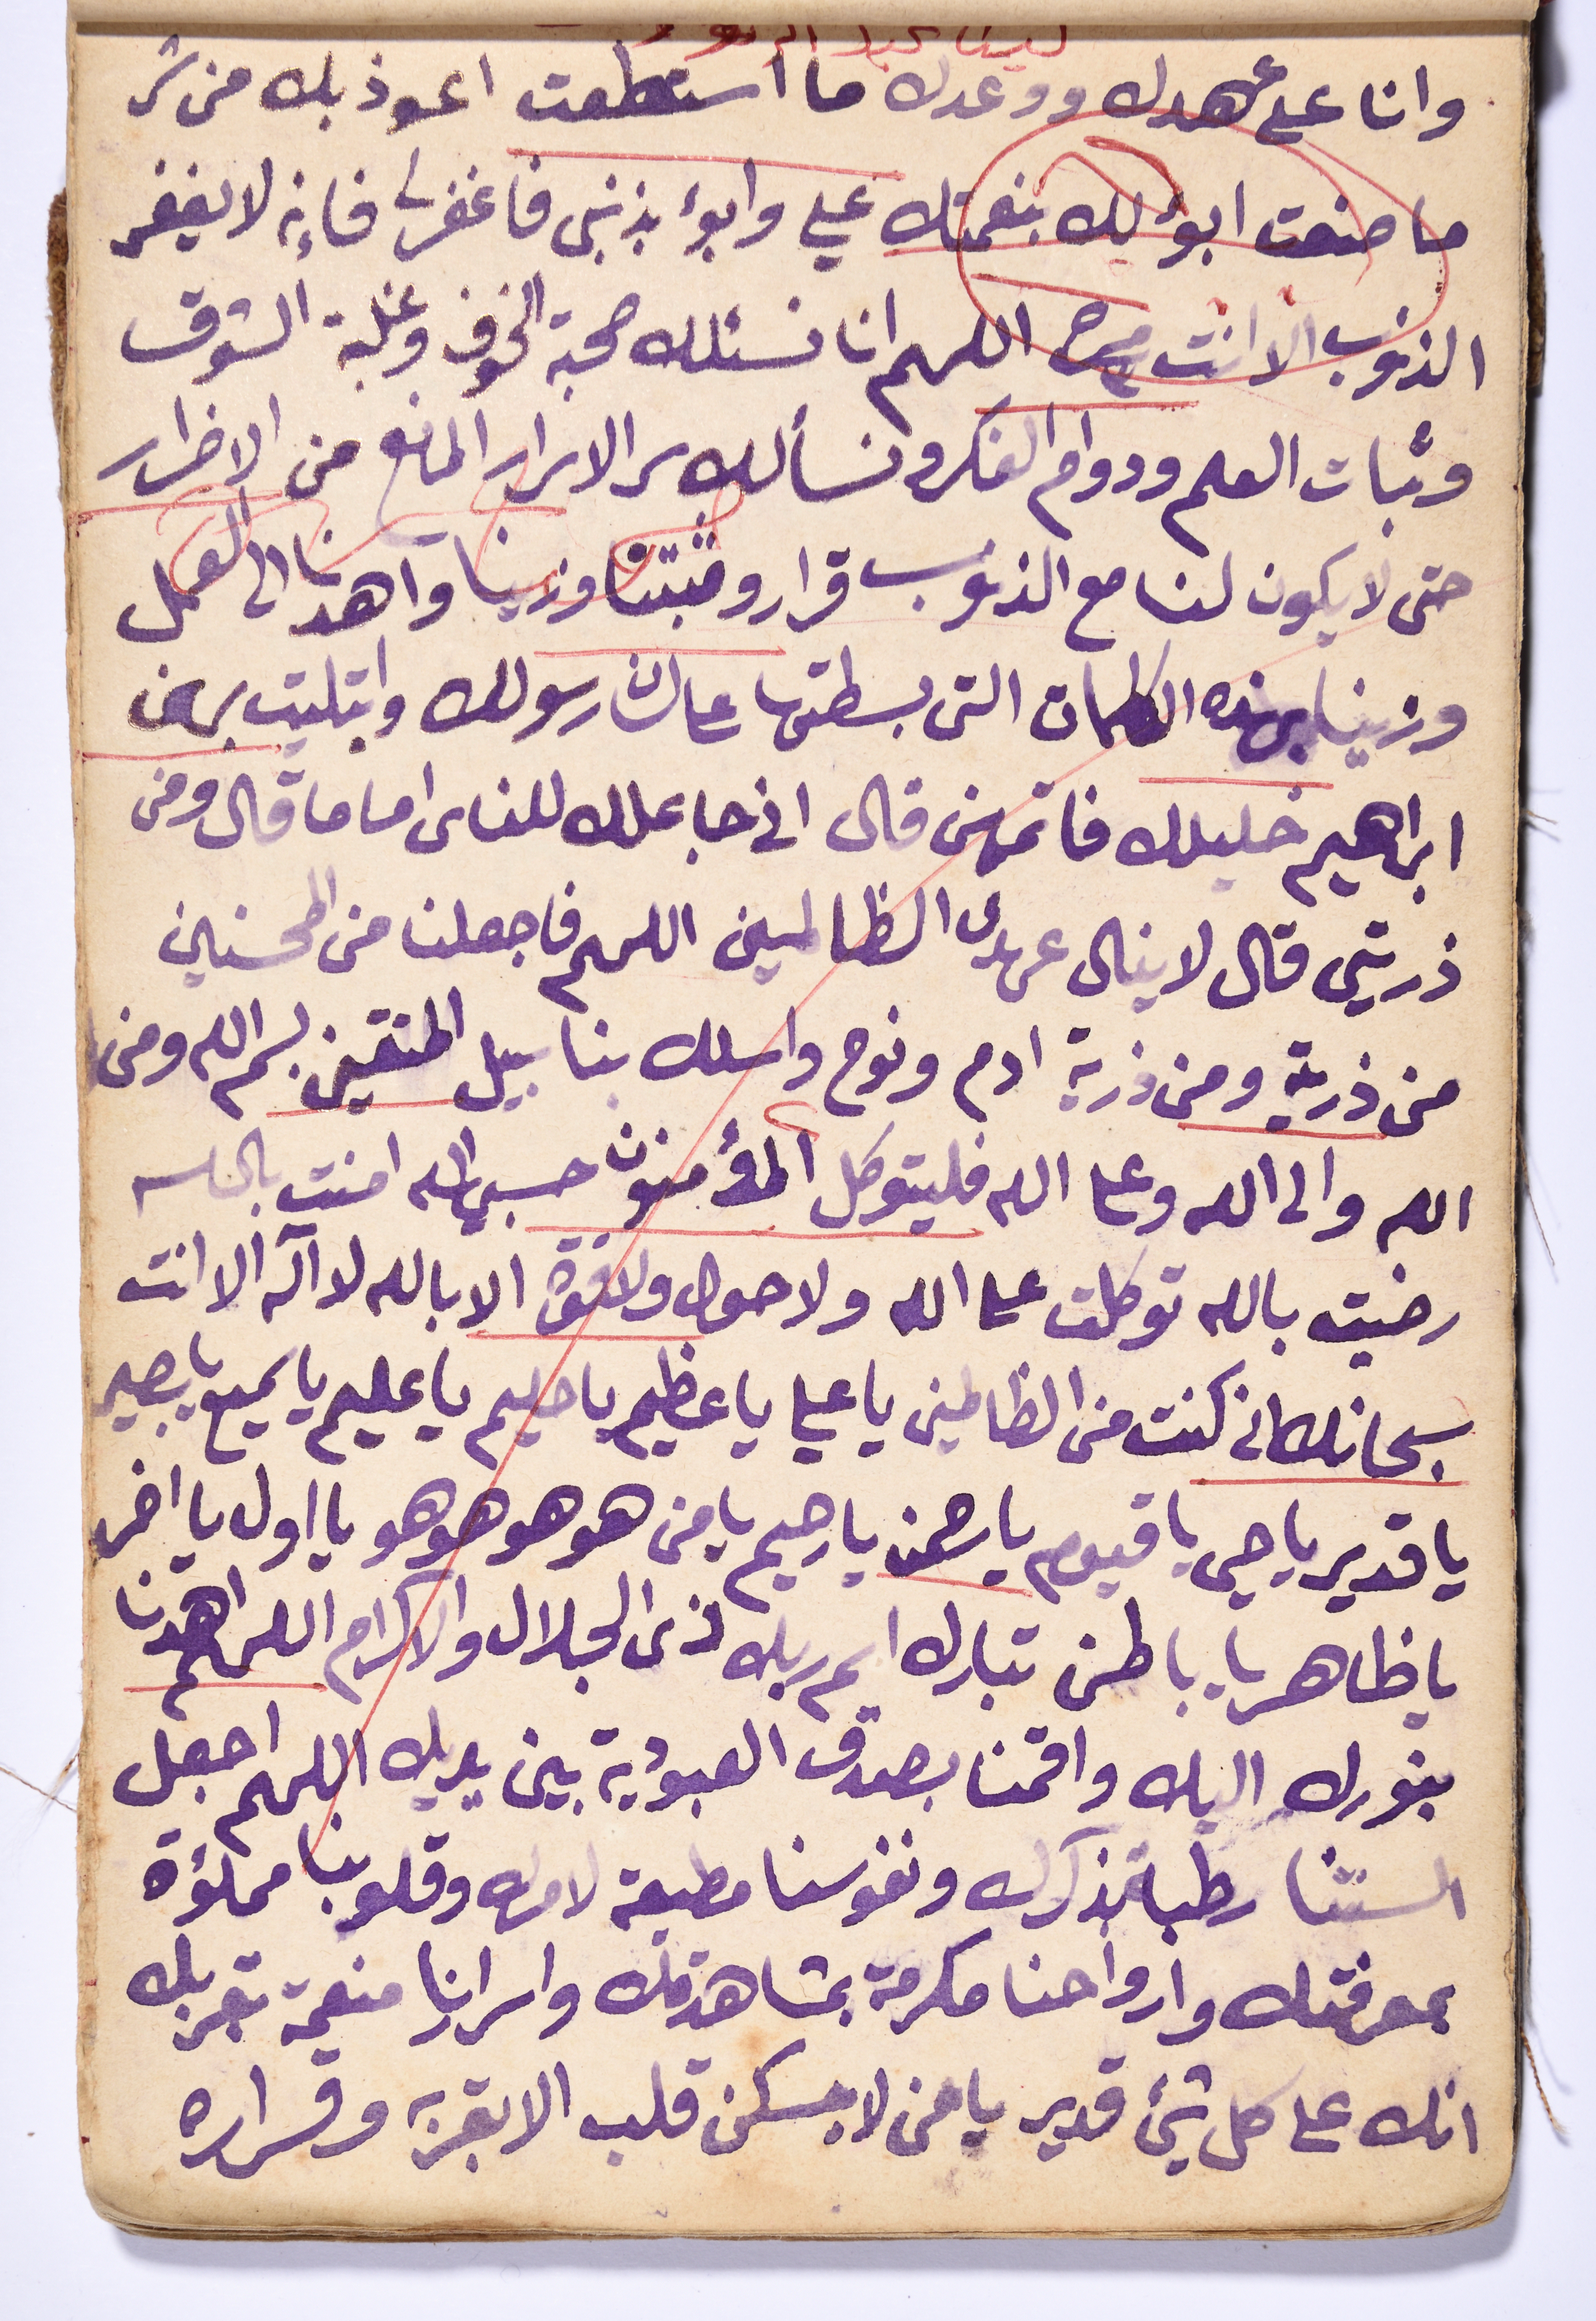 وانا على عهدك ووعدك ما استطعت اعوذ بك من شر
ما صنعت ابوؤ لك بنعمتك علي وابوؤ بذنبي فاغفر لي فإنه لا يغفر
الذنوب الا انت اللهم انا نسئلك صحبة الخوف وغلبة الشوق
وثبات العلم ودوام الفكر ونسألك سر الاسرار المانع من الاضرار
حتى لا يكون لنا مع الذنوب قرار وثبتنا وزينا واهدنا الى العمل
وزينا بهذه الكلمات التى بسطتها على لسان رسولك وابتليت بهن
ابراهيم خليلك فاتمهن قال اني جاعلك للناس اماما قال ومن
ذريتي قال لا ينال عهدى الظالمين اللهم فاجعلنا من المحسنين
من ذرية ومن ذرية ادم ونوح واسلك بنا سبيل المتقين بسم الله ومن
الله والى الله وعلى الله فليتوكل المؤمنون حسبي الله امنت بالله
رضيت بالله توكلت على الله ولا حول ولا قوة الا بالله لا اله الا انت
سبحانك اني كنت من الظالمين يا علي يا عظيم يا حليم يا عليم يا سميع يا بصير
يا قدير يا حي يا قيوم يا رحمن يا رحيم يا من هو هو هو هو يا اول يا اخر
يا ظاهر يا باطن تبارك اسم ربك ذى الجلال والاكرام اللهم اهدنا
بنورك اليك واقمنا بصدق العبودية بين يديك اللهم اجعل
السنتنا رطبة بذكرك ونفوسنا مطيعة لامرك وقلوبنا مملؤة
بمعرفتك وارواحنا مكرمة بمشاهدتك واسرارنا منعمة بقربك
انك على كل شئ قدير يا من لا يسكن قلب الا بقربه وقراره